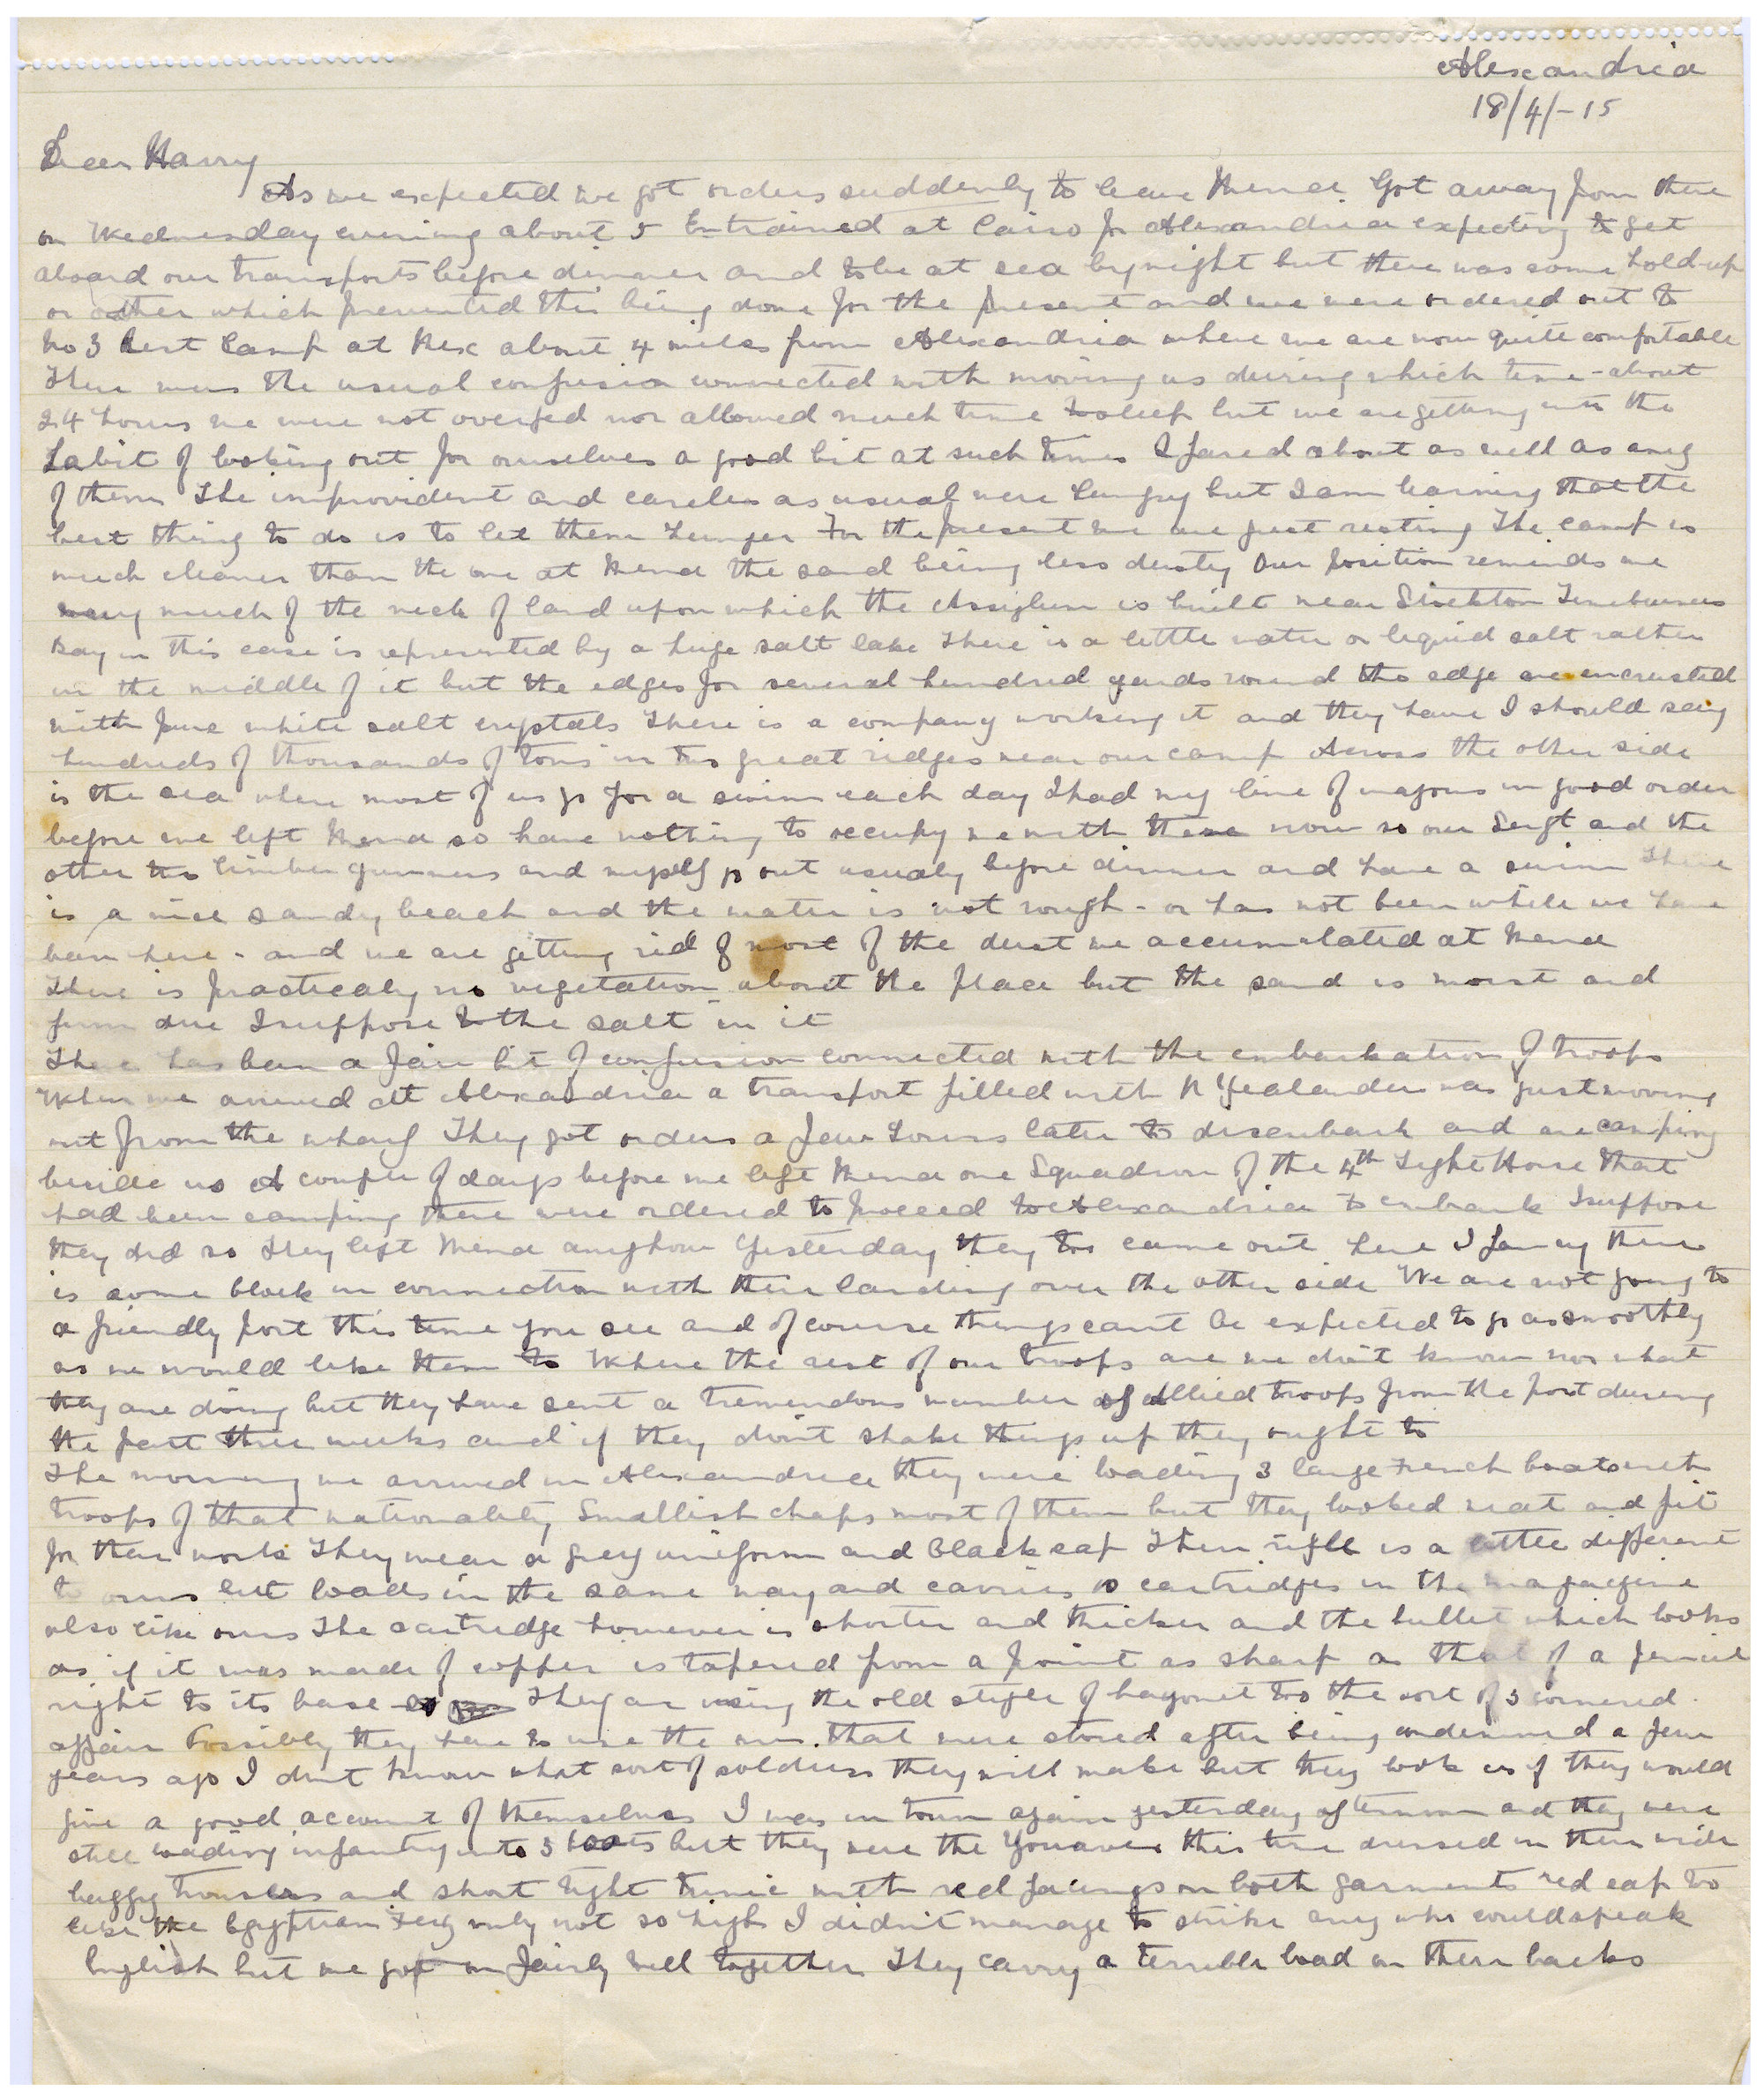 Alexandria
18/4/-15
Dear Harry
As we expected we got orders suddenly to leave Mena. Got away from there
on Wednesday evening about 5 Entrained at Cairo for Alexandria expecting to get
aboard our transports before dinner and to be at sea by night but there was some hold-up
or other which prevented this being done for the present and we were ordered out to
No 3 Rest Camp at Mex about 4 miles from Alexandria where we are now quite comfortable
There was the usual confusion connected with moving us during which time - about
24 hours we were not overfed nor allowed much time to sleep but we are getting into the
habit of looking out for ourselves a good bit at such times I fared about as well as any
of them The improvident and careless as usual were hungry but I am learning that the
best thing to do is to let them hunger For the present we are just resting The camp is
much cleaner than the one at Mena the sand being less dusty Our position reminds me
very much of the neck of land upon which the Assylum is built near Stockton
Bay in this case is represented by a huge salt lake There is a little water or liquid salt rather
in the middle of it but the edges for several hundred yards round the edge are encrusted
with pure white salt crystals There is a company working it and they have I should say
hundreds of thousands of tons in two great ridges near our camp Across the other side
is the sea where most of us go for a swim each day I had my line of wagons in good order
before we left Mena so have nothing to occupy me with these now so our Sergt and the
other two limber gunners and myself go out usualy before dinner and have a swim There
is a nice sandy beach and the water is not rough - or has not been while we have
been here - and we are getting rid of most of the dust we accumulated at Mena
There is practicaly no vegetation about the place but the sand is moist and
firm due I suppose to the salt in it
There has been a fair bit of confusion connected with the embarkation of troops
When we arrived at Alexandria a transport filled with N Zealanders was just moving
out from the wharf They got orders a few hours later to disembark and are camping
beside us A couple of days before we left Mena one Squadron of the 4th Light Horse that
had been camping there were ordered to proceed to Alexandria to embark I suppose
they did so They left Mena anyhow Yesterday they too came out here I fancy there
is some block in connection with their landing over the other side We are not going to
a friendly port this time you see and of course things cant be expected to go as smoothly
as we would like them to Where the rest of our troops are we dont know nor what
they are doing but they have sent a tremendous number of Allied troops from the port during
the past three weeks and if they dont shake things up they ought to
The morning we arrived in Alexandria they were loading 3 large French boats with
troops of that nationality Smallish chaps most of them but they looked neat and fit
for their work They wear a grey uniform and black cap Their rifle is a little different
to ours but loads in the same way and carries 10 cartridges in the magazine
also like ours The cartridge however is shorter and thicker and the bullet which looks
as if it was made of copper is tapered from a point as sharp as that of a pencil
right to its base They are using the old style of bayonet too the sort of 3 cornered
affair Possibly they have to use the ones that were stored after being condemned a few
years ago I dont know what sort of soldiers they will make but they look as if they would
give a good account of themselves I was in town again yesterday afternoon and they were
still loading infantry into 3 boats but they were the Zouaves this time dressed in their wide
baggy trousers and short tight tunic with red facings on both garments red cap too
like the Egyptian Fez only not so high I didn't manage to strike any who could speak
English but we got on fairly well together They carry a terrible load on their backs